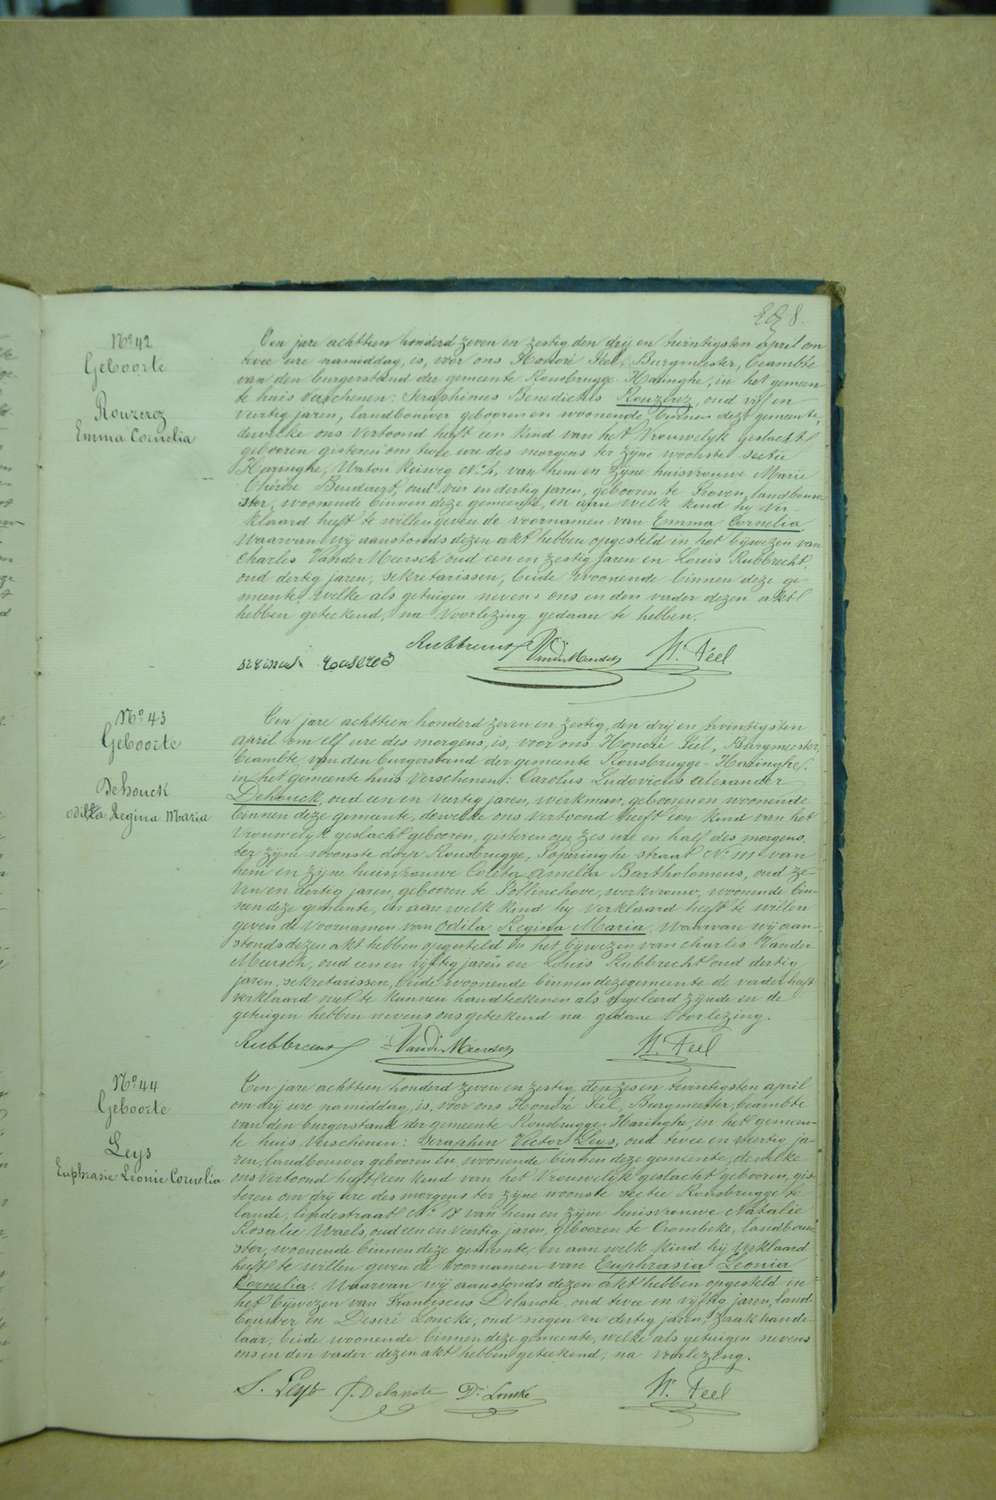 8.
No 42
Geboorte
Rouzeroz
Emma Cornelia
Een jare achttien honderd zeven en zestig den drij en twintigsten april om
twee ure namiddag, is, voor ons Honoré Feel, Burgmeester, beambte
van den burgerstand der gemeente Rousbrugge Haringhe, in het gemeen-
te huis verschenen: Seraphinus Benedictus Rouzerez oud vijf en
veertig jaren, landbouwer geboren en woonende binnen deze gemeente,
dewelke ons vertoond heeft een kind van het vrouwelyk geslacht
geboren gisteren om twee ure des morgens ter zyne woonste sectie
Haringhe, Watou Reisweg No 4, van hem en zyne huisvrouwe Marie
Thérèse, oud vier en dertig jaren, geboren te Proven, landbouw-
ster, woonende binnen deze gemeente, en aan welk kind hy ver-
klaard heeft te willen geven de voornamen van Emma Cornelia
Waarvan wij aanstonds dezen akt hebben opgesteld in het bijwezen van
Charles Vander Meersch oud een en zestig jaren en Louis Rubbrecht,
oud dertig jaren, sekretarissen, beide woonende binnen deze ge-
meente, welke als getuigen nevens ons en den vader dezen akt
hebben geteekend, na voorlezing gedaan te hebben.
Rubbrecht VanderMeersch H. Feel
No 43
Geboorte
Dehouck
Odilla Regina Maria
Een jare achttien honderd zeven en zestig, den drij en twintigsten
april om elf ure des morgens, is, voor ons Honoré Feel, Burgmeester,
beambte van den burgerstand der gemeente Rousbrugge-Haringhe,
in het gemeente huis verschenen: Carolus Ludovicus Alexander
Dehouck, oud een en veertig jaren, werkman, geboren en woonende
binnen deze gemeente, dewelke ons vertoond heeft een kind van het
vrouwelyk geslacht geboren, gisteren om zes ure en half des morgens,
ter zyne wooste dorp Rousbrugge, Poperinghe straat No 111 van
hem en zyne huisvrouwe Coleta Amelia Bartholomeus, oud ze-
ven en dertig jaren, geboren te Pollinchove, werkvrouw, woonende bin-
nen deze gemeente, en aan welk kind hy verklaard heeft te willen
geven de voornamen van Odila Regina Maria. Waarvan wij aan-
stonds dezen akt hebben opgesteld in het bijwezen van Charles Vander
Meersch, oud een en vyftig jaren en Louis Rubbrecht oud dertig
jaren, sekretarissen, beide woonende binnen deze gemeente de vader heeft
verklaard niet te kunnen handteekenen als ongeleerd zynde en de
getuigen hebben nevens ons geteekend na gedane voorlezing.
Rubbrecht VanderMeersch H. Feel
No 44
Geboorte
Leys
Euphrasie Leonie Cornelia
Een jare achttien honderd zeven en zestig den zes en twintigsten april
om drij ure namiddag, is, voor ons Honoré Feel, Burgmeester, beambte
van den burgerstand der gemeente Rousbrugge Haringhe, in het gemeen-
te huis verschenen: Seraphin Victor Leys, oud twee en veertig ja-
ren, landbouwer geboren en woonende binnen deze gemeente, dewelke
ons vertoond heeft een kind van het vrouwelyk geslacht geboren, gis-
teren om drij ure des morgens ter zyne wooste sectie Rousbrugge te
lande, lindestraat No 18 van hem en zyne huisvrouwe Natalie
Rosalie Waels, oud een en veertig jaren, geboren te Crombeke, landbouw-
ster, woonende binnen deze gemeente, en aan welk kind hij verklaard
heeft te willen geven de voornamen van Euphrasia Leonia
Cornelia. Waarvan wij aanstonds dezen akt hebben opgesteld in
het bijwezen van Franciscus Delanote, oud twee en vyftig jaren, land
bouwer en Désiré Loncke, oud negen en dertig jaren, zaakhande-
laar, beide woonende binnen deze gemeente, welke als getuigen nevens
ons en den vader dezen akt hebben geteekend, na voorlezing.
S. Leys f. Delanote D. Loncke H. Feel